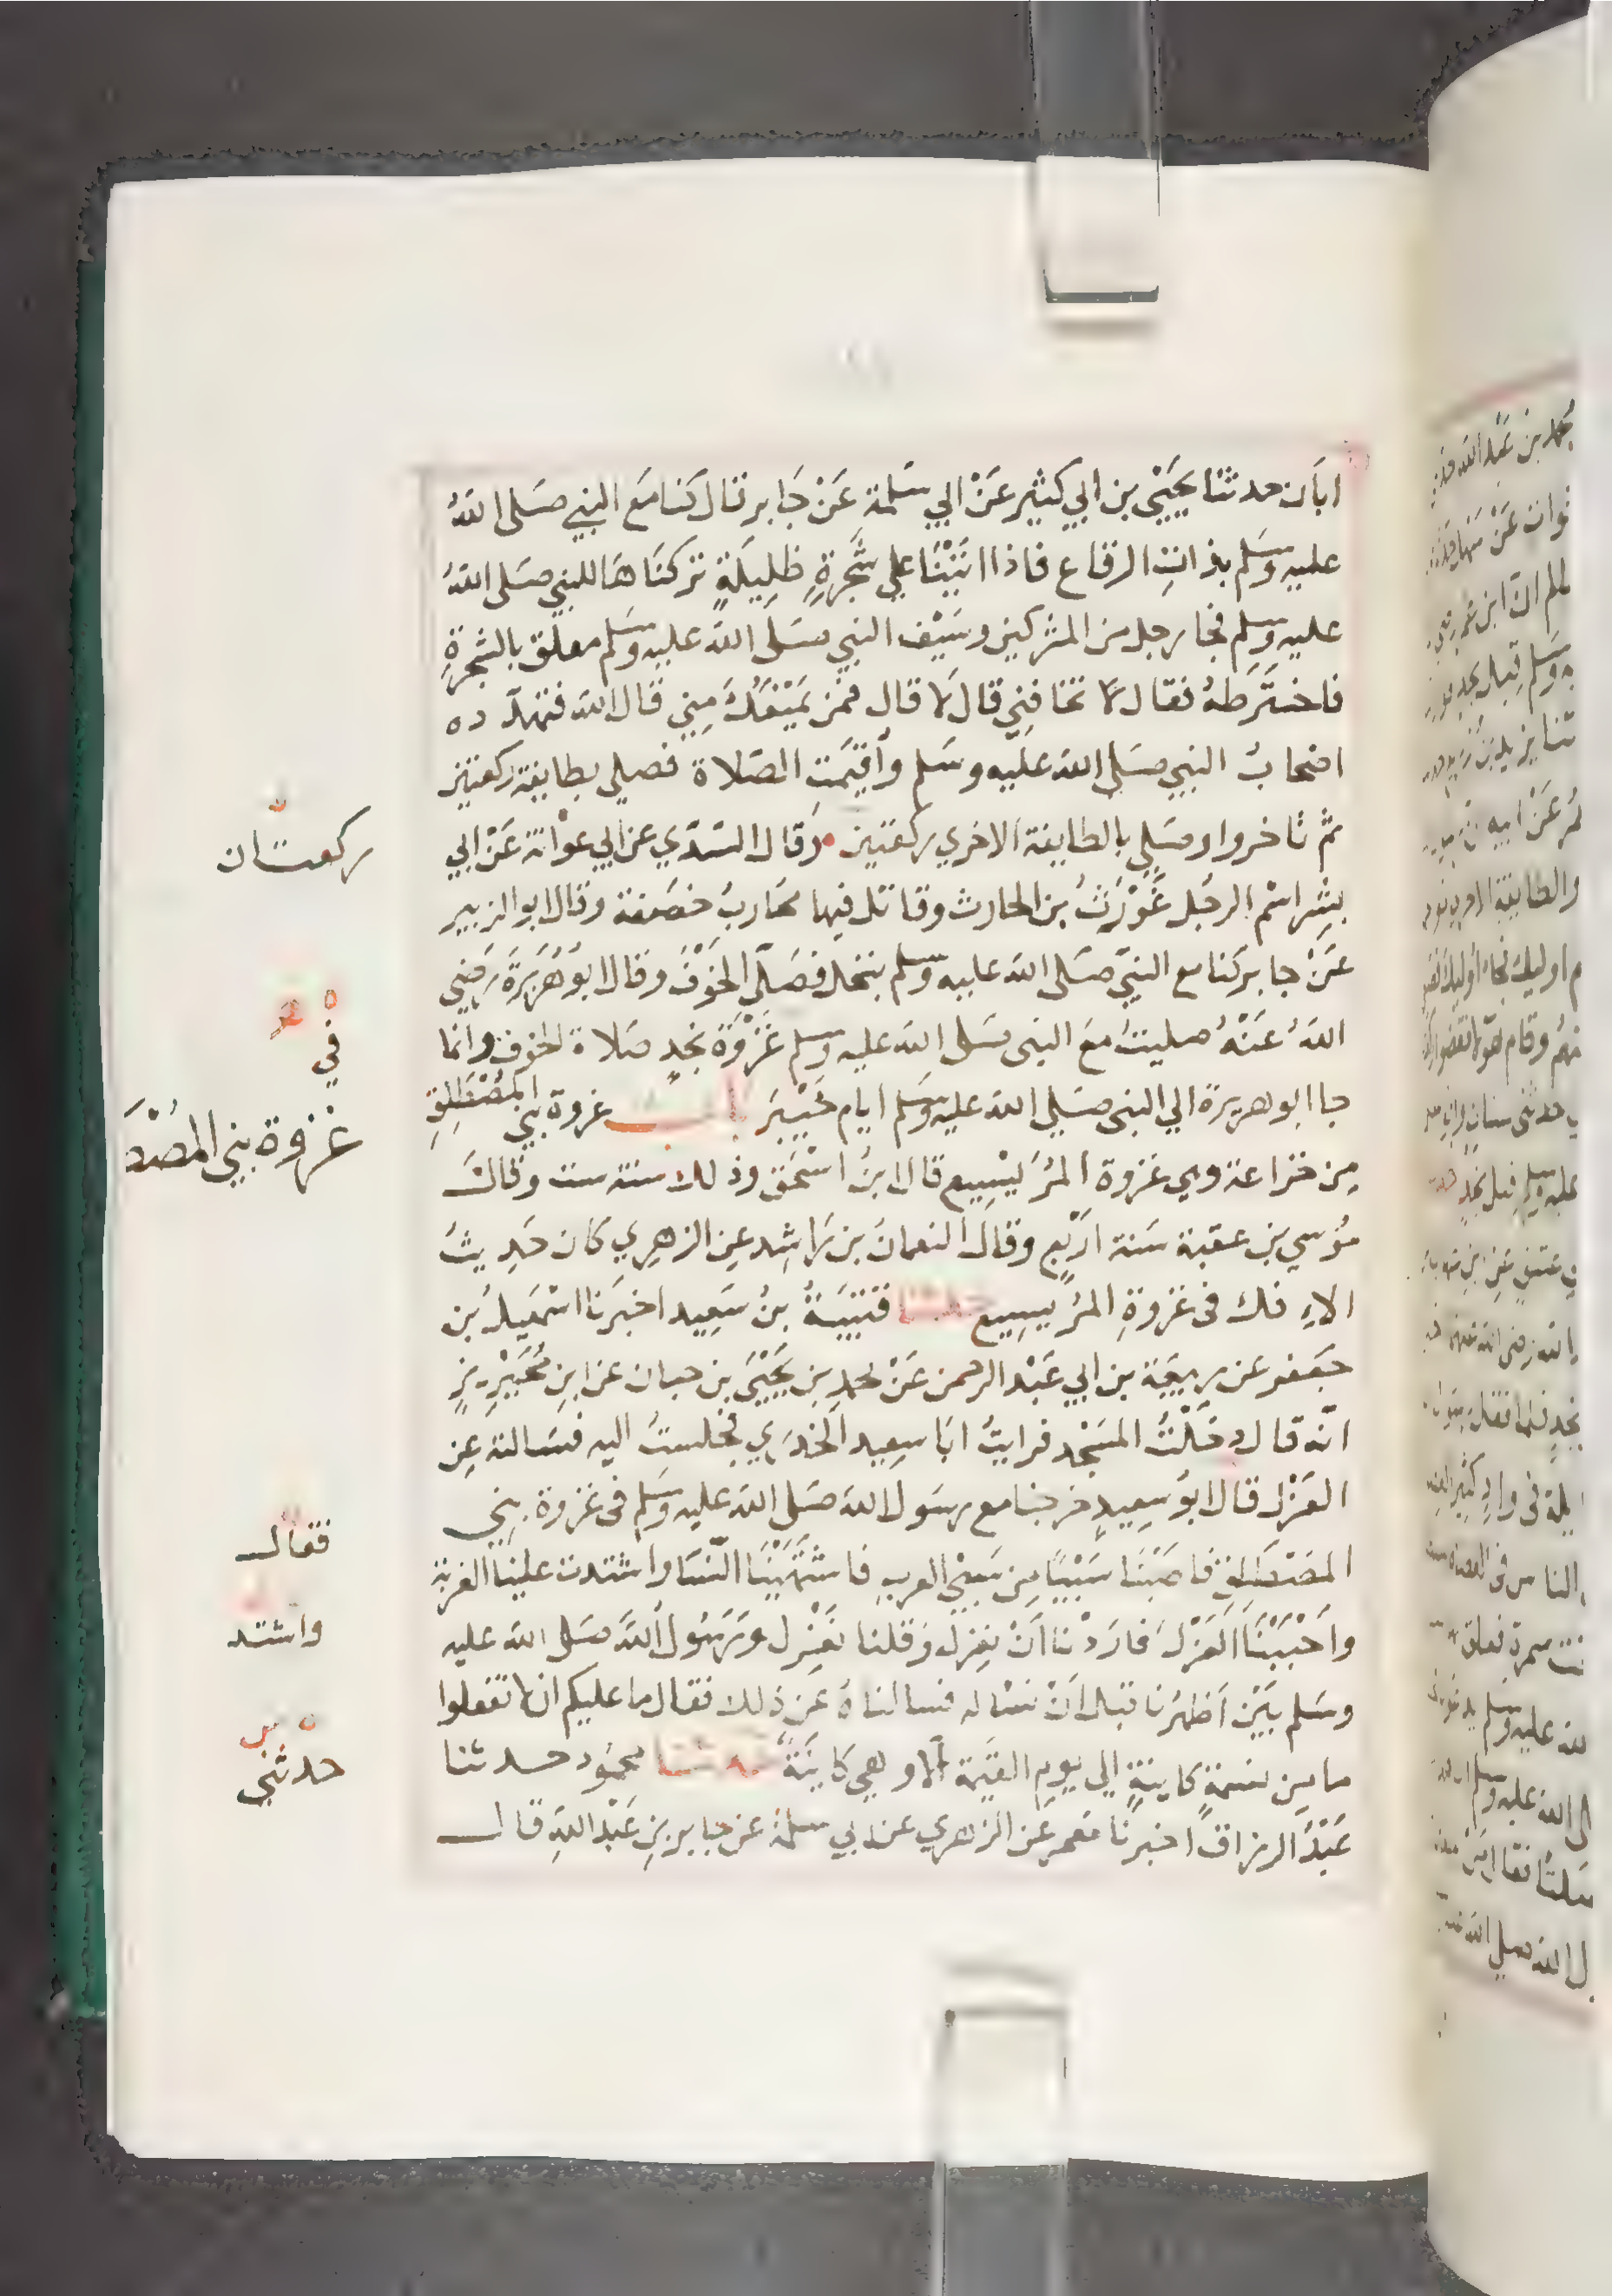 ابَان حدثنا يَحْيَى بن ابي كثير عَنْ ابي سَلمة عَنْ جَابر قال كنا مَع النبي صَلى اللهُ
عليه وسَلم بذات الرقاع فاذا اتَيْنَا علي شَجَرَةٍ ظَلِيلَةٍ تركنَاهَا للنبي صَلى اللهُ
عليه وسَلم فجا رجل من المشركين وسَيْف النبي صَلى الله عليه وسَلم معلق بالشجرةِ
فاخترَطهُ فقال لا تخافنِي قال لَا قال فمن يَمْنَعُكَ مِنِي قال الله فتهدّده
اصْحابُ النبي صَلى الله عليه وسَلم وأقيمَتِ الصّلاة فصلي بطايفة ركعتين
ثم تاخروا وصَلي بالطايفة الاخري ركعتين وَقال السّدّي عن ابي عوانة عَنْ ابي
بِشْر اسْم الرجُل غَوْرَثُ بن الحارث وقاتل فيها محاربُ خصَفة وقال ابو الزبير
عَنْ جابر كنا مع النبيّ صَلى الله عليه وسلم بنخل فصَلّى الخوْفَ وقال ابوُ هُرَيرَةَ رَضِي
اللهُ عَنْهُ صليتُ مَع النبى صَلى الله عليه وسلم غَزْوَة نجدٍ صَلاة الخوف وانما
جا ابو هريرة الي النبى صَلي الله عليه وسَلم ايام خَيْبرَ باب غزوة بني المُصْطَلِقِ
مِن خزاعة وهي غزوة المُرَيْسِيع قال ابنُ اسْحَق وذلك سنة ست وقال
مُوسي بن عقبة سَنة اربَع وقال النعمانُ بن رَاشِد عن الزهري كان حَدِيثُ
الاِفك فى غزوةِ المُرَيسيع حدثنا قتَيْبَةُ بنُ سَعِيد اخبَرَنا اسْمَعِيلُ بن
جَعفر عن ربيعَة بن ابي عَبْد الرحمن عَنْ محمد بن يَحْيَى بن حبان عن ابنِ مُحَيْرِيزٍ
انّه قال دخَلْتُ المسَجْد فرايتُ ابَا سعيد الخدَري فجلستُ اليه فسَالته عِن
العَزْل قال ابوُ سعِيدٍ خرجنا مع رسَول الله صَلى الله عليه وسَلم فى غزوة بنِي
المُصْطَلِق فاصَبْنَا سَبْيًا مِن سَبْي العربِ فاشتَهَيْنَا النّسَا واشتدت علينا العُزبة
واَحْبَبْنَا العَزْلَ فارَدْنا اَنْ نعزل وقلنا نعْزِل ورَسُول اللهَ صَلى الله عليه
وسَلم بَيْن اَظهُرِنا قبل اَنْ نسْاله فسالناهُ عن ذلك فقال ما عليكم ان لا تفعلوا
ما من نسَمةٍ كاينةٍ الي يومِ القيَمة الا وهي كاينَةٌ حدثنا محمُود حدثنا
عَبْدُ الرزاق اخبرَنا مَعمر عَن الزهري عن ابي سلمة عن جابر بنِ عَبْد اللهِ قال
ركعتان
في
غزوة بني المُصْطَ
فقال
واشتد
حدثني